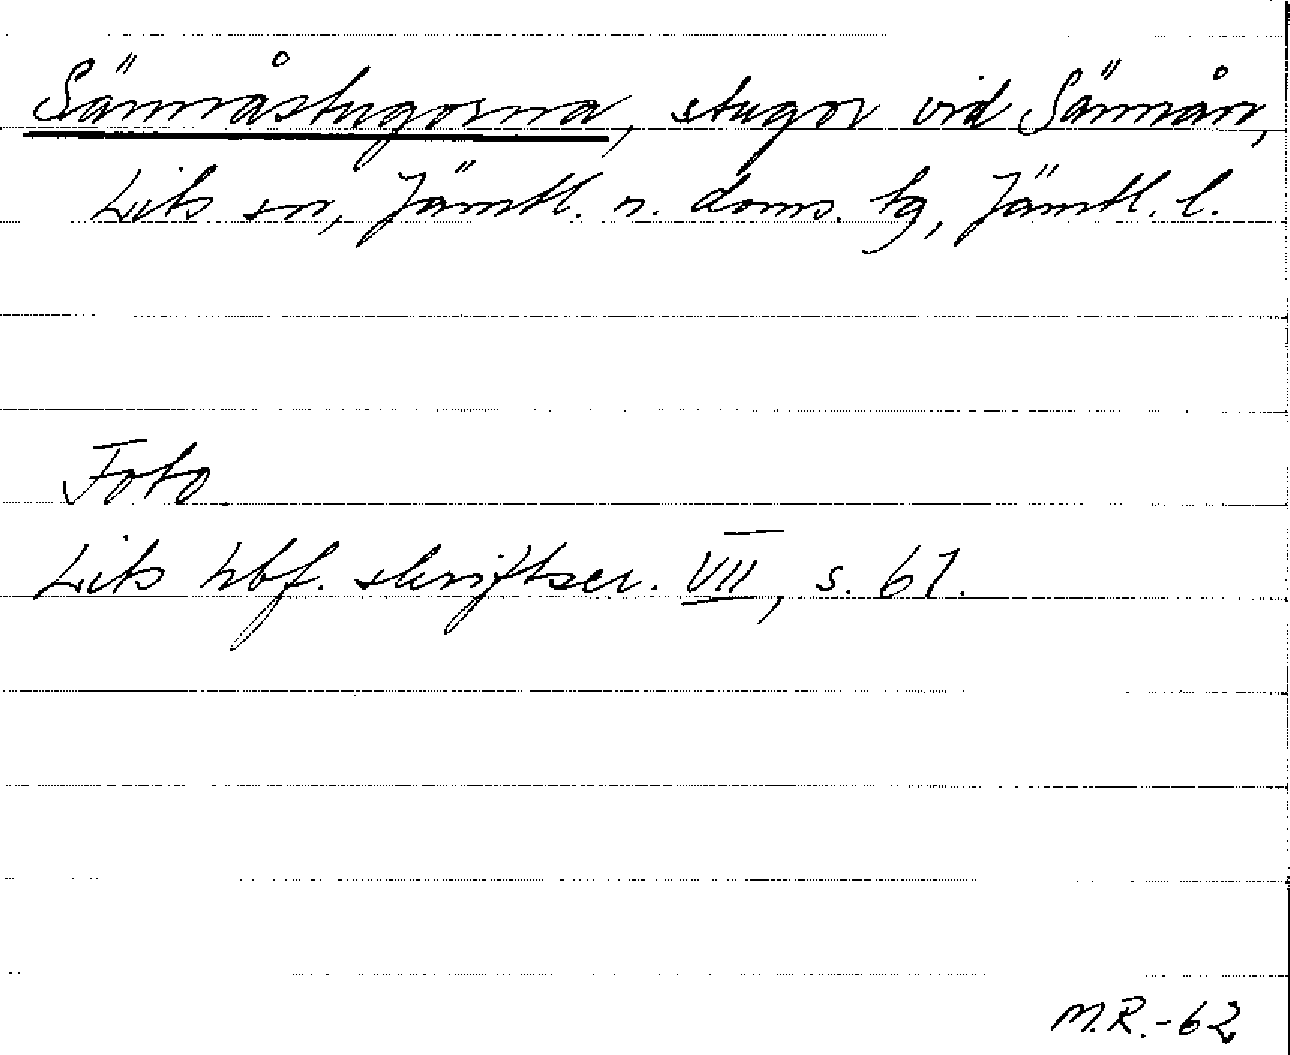 Sännåstugorna, stugor vid Sännån,
Lits sn, Jämtl. n. doms. tg, Jämtl. l.
Foto.
Lits hbf. skriftser. VII, s. 67.
M.R.-62